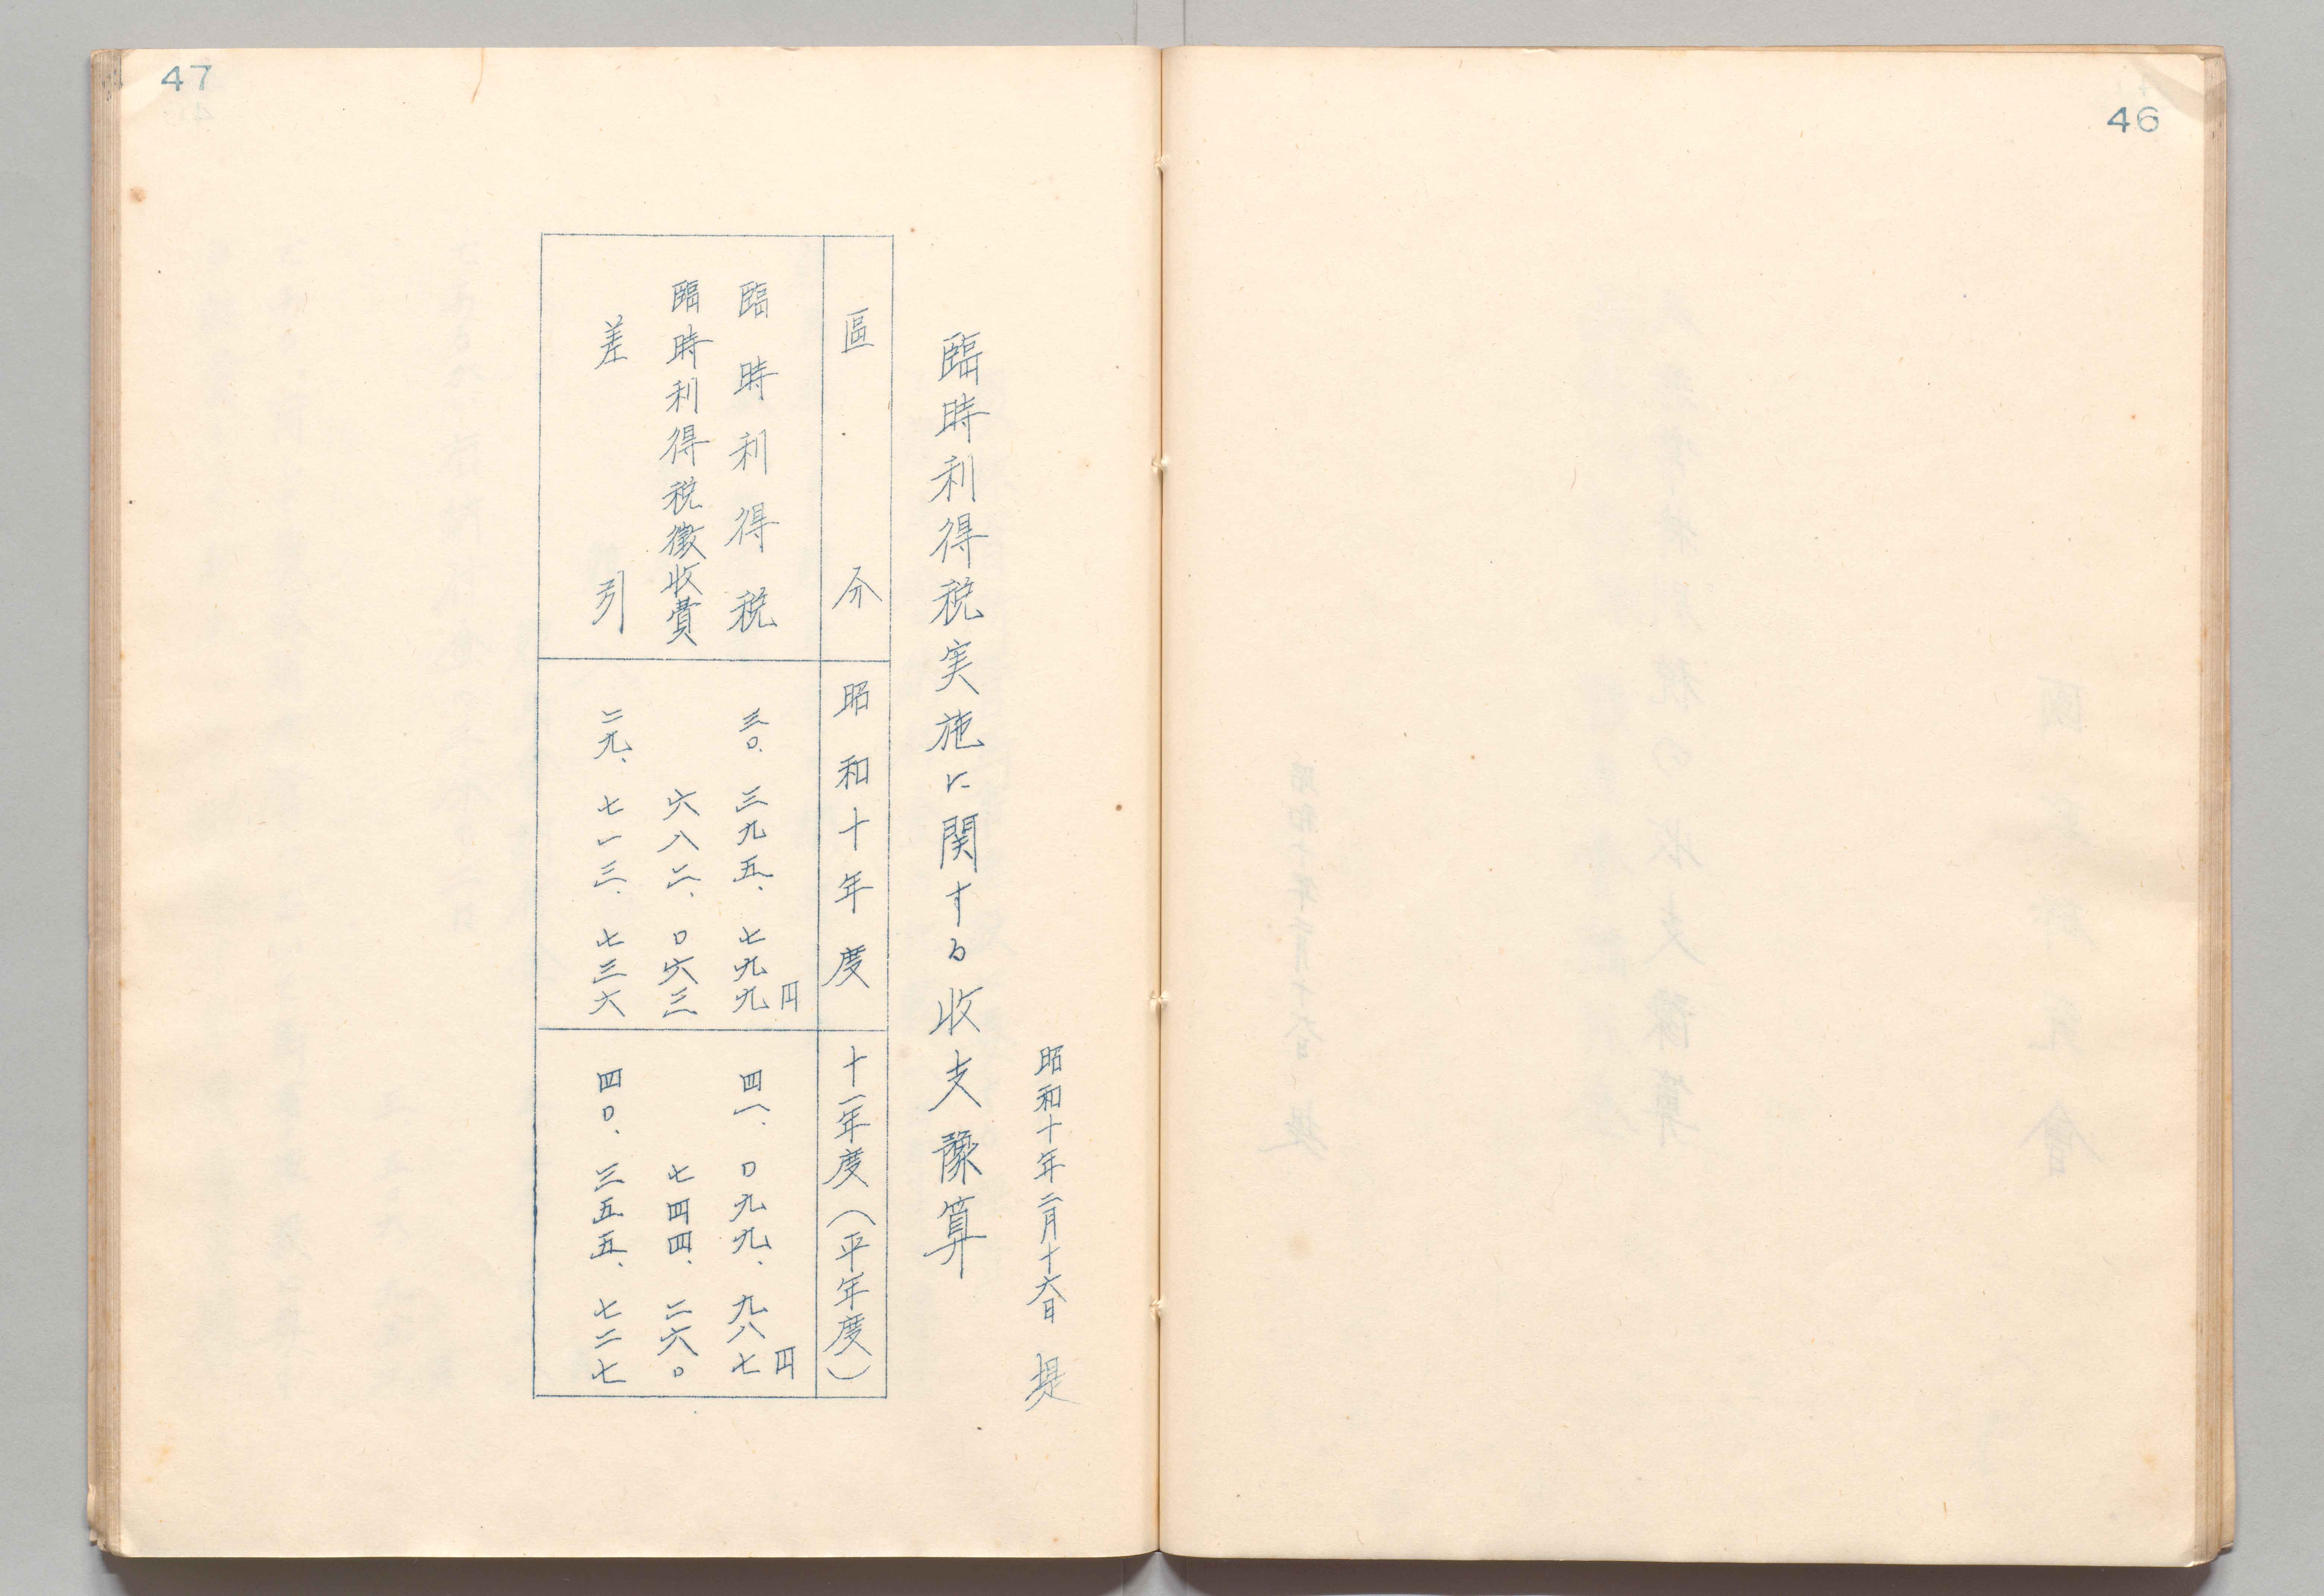 46
47
昭和十年二月十六日 提
臨時利得税実施に関する收支豫算
區分 昭和十年度 十一年度（平年度）
円 円
臨時利得税 三〇、三九五、七九九 四一、〇九九、九八七
臨時利得税徵收費 六八二、〇六三 七四四、二六〇
差引 二九、七一三、七三六 四〇、三五五、七二七